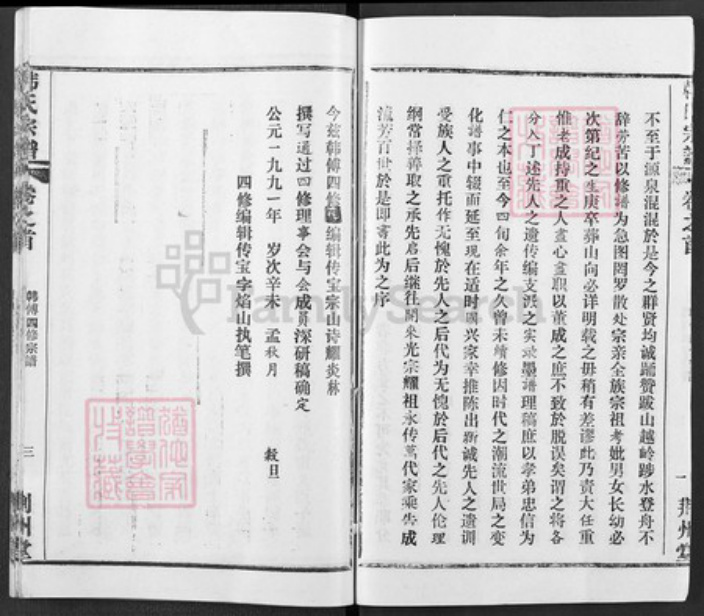 不至于源泉混混於是今之群贤均诚踊赞跋山越岭踄水登舟不
辞劳苦以修谱为急图罔罗散处宗亲全族宗祖考妣男女长幼必
次第纪之生庚卒葬山向必详明载之毋稍有差谬此乃责大任重
惟老成持重之人盡心盡职以董成之庶不致於脱误矣谓之将各
分入丁述先人之遗传编支派之实录墨谱理稿庶以孝弟忠信为
仁之本也至今四旬余年之久曾未续修因时代之潮流世局之变
化谱事中辍而延至现在适时國兴家幸推陈出新诚先人之遗训
受族人之重托作无愧於先人之后代为无愧於后代之先人伦理
纲常择善取之承先启后继往開来光宗耀祖永传萬代家乘告成
流芳百世於是即書此为之序
一
荆州堂
今兹韩傅四修 编辑传宝宗山诗耀炎林
撰写通过四修理事会与会成員深研稿确定
公元一九九一年 岁次辛未 孟秋月 穀旦
四修编辑传宝字焰山执笔撰
韩氏宗譜
卷之首
韩傅四修宗譜
三
荆州堂
FamilySearch